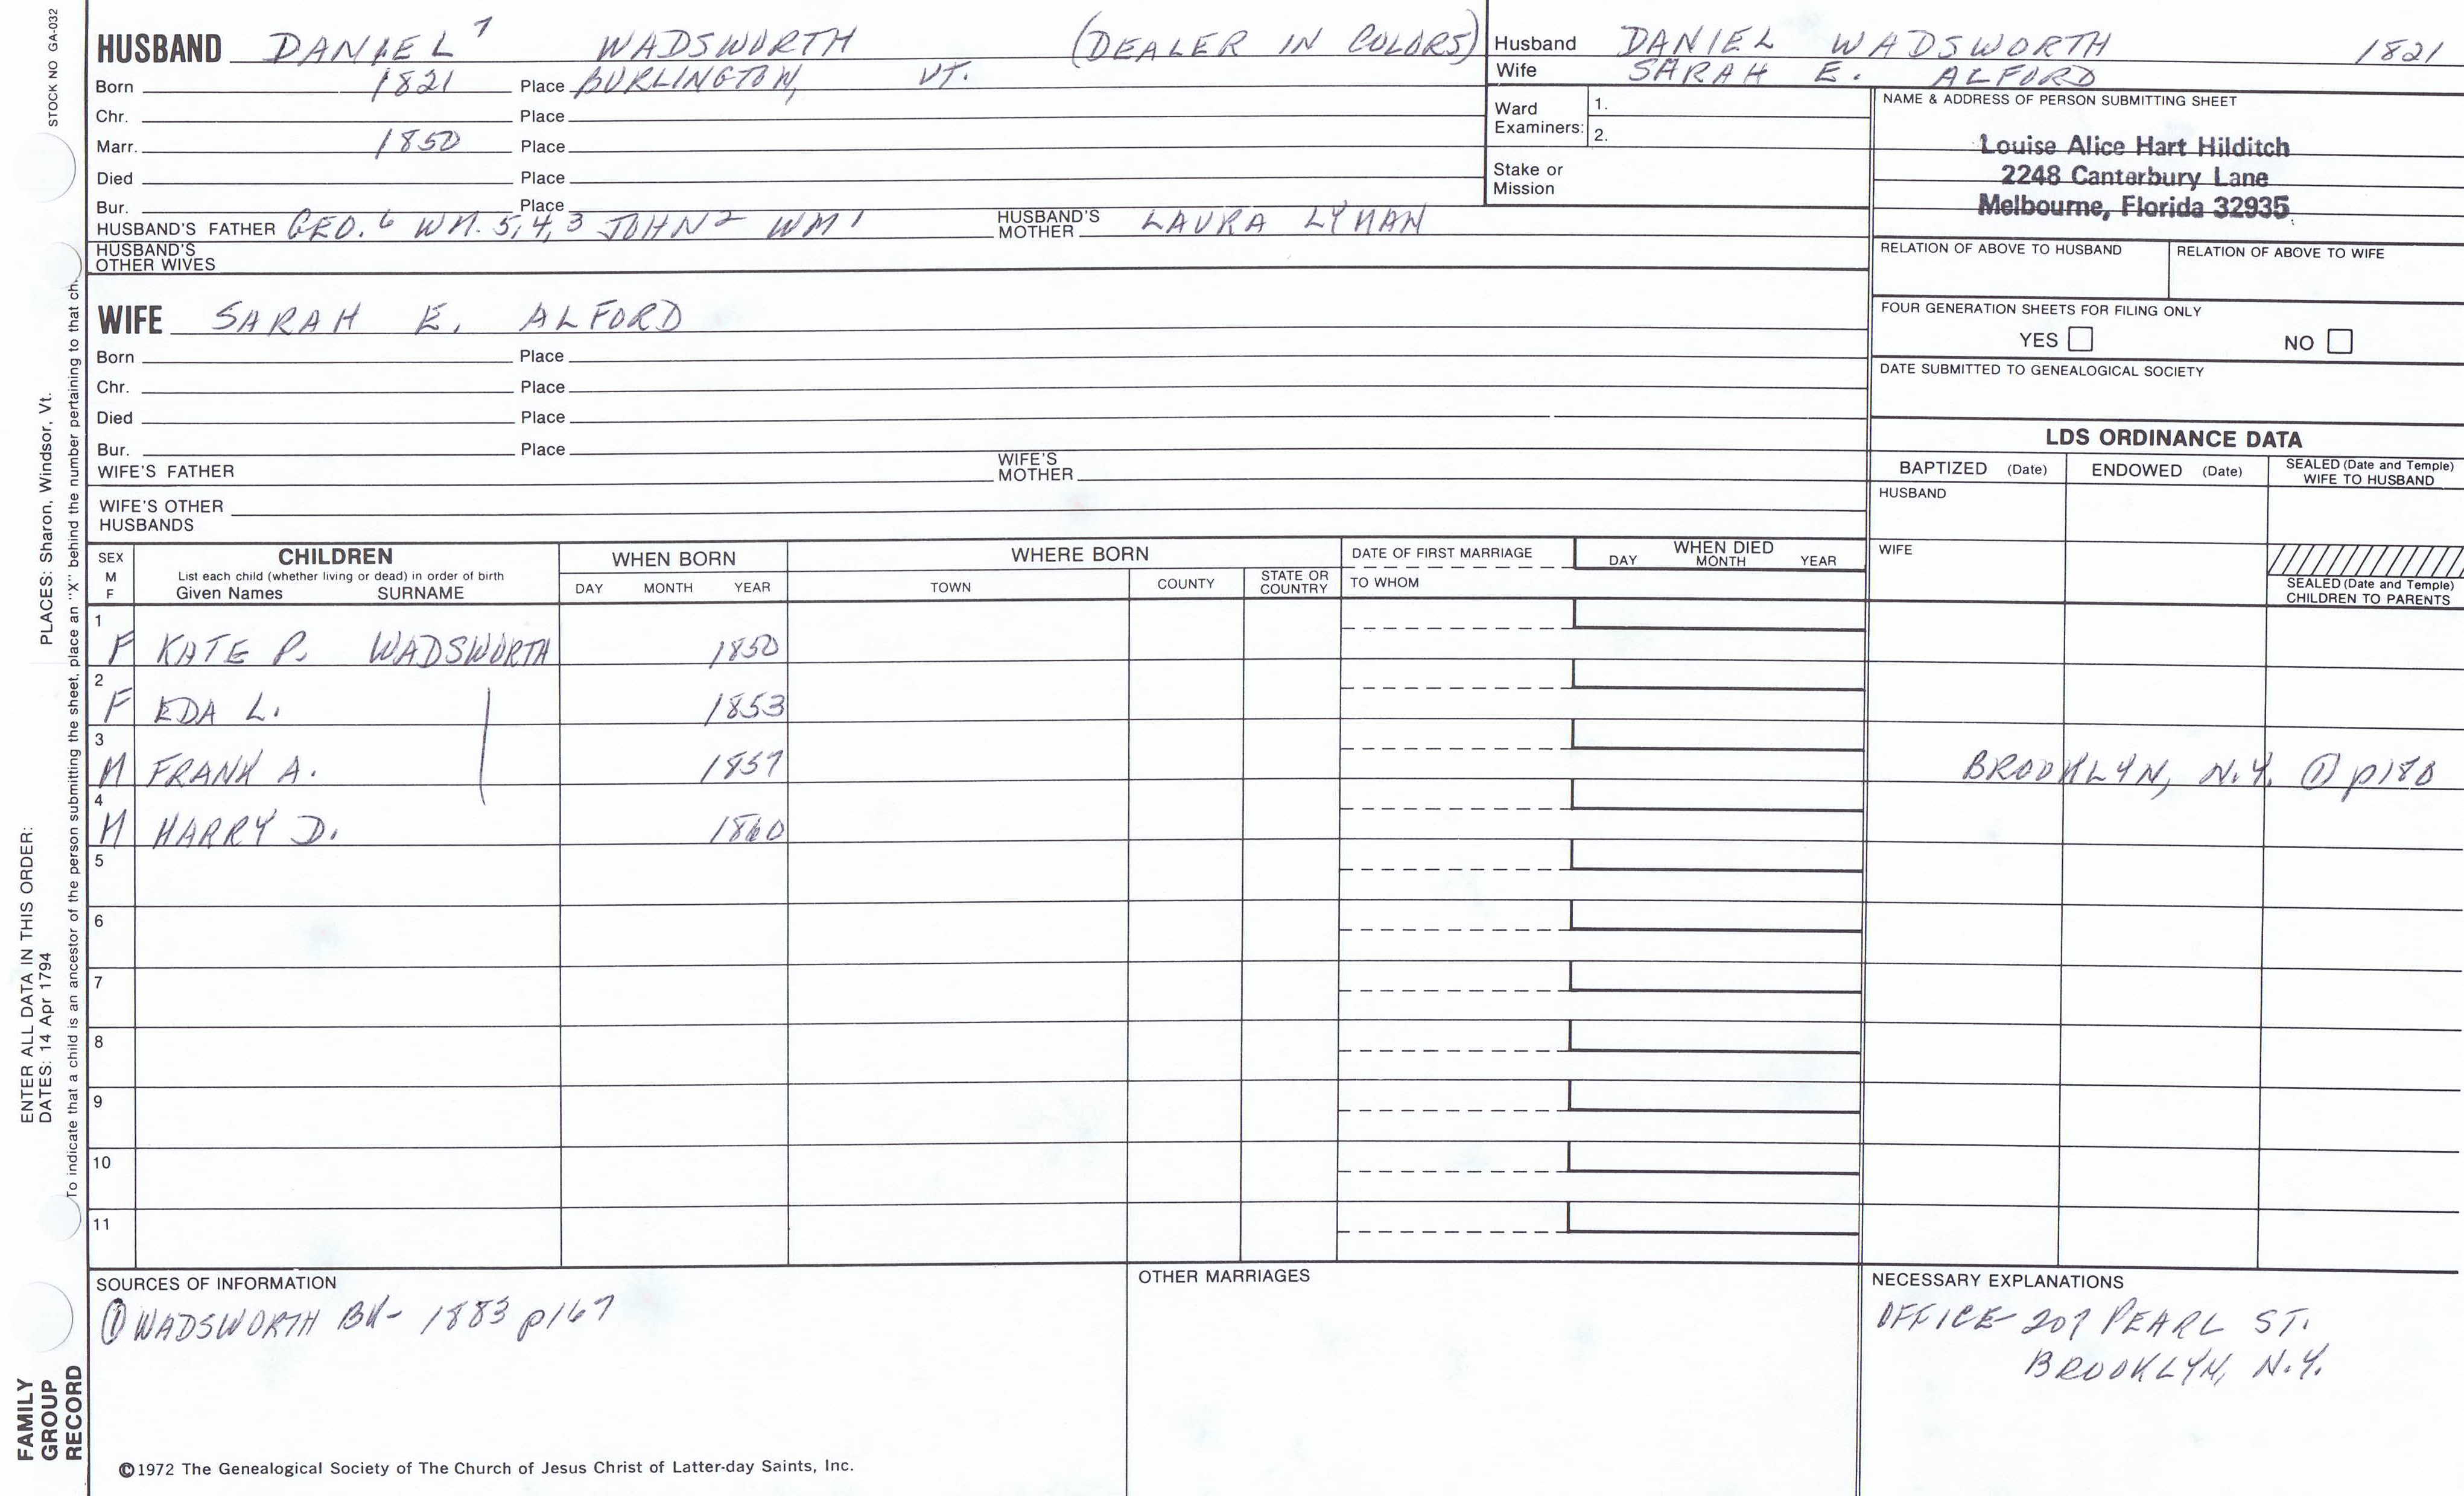 STOCK NO GA-032
PLACES: Sharon, Windsor, Vt.
ENTER ALL DATA IN THIS ORDER:
DATES: 14 Apr 1794
To indicate that a child is an ancestor of the person submitting the sheet, place an "X" behind the number pertaining to that ch.
FAMILY GROUP RECORD
HUSBAND DANIEL 7 WADSWORTH (DEALER IN COLORS)
Born 1821 Place BURLINGTON, VT.
Chr. Place
Marr. 1850 Place
Died Place
Bur. Place
HUSBAND'S FATHER GEO. 6 WM. 5,4,3 JOHN 2 WM 1 HUSBAND'S MOTHER LAURA LYMAN
HUSBAND'S OTHER WIVES
WIFE SARAH E. ALFORD
Born Place
Chr. Place
Died Place
Bur. Place
WIFE'S FATHER WIFE'S MOTHER
WIFE'S OTHER HUSBANDS
Husband DANIEL WADSWORTH 1821
Wife SARAH E. ALFORD
Ward Examiners: 1.
2.
Stake or Mission
NAME & ADDRESS OF PERSON SUBMITTING SHEET
Louise Alice Hart Hilditch
2248 Canterbury Lane
Melbourne, Florida 32935
RELATION OF ABOVE TO HUSBAND RELATION OF ABOVE TO WIFE
FOUR GENERATION SHEETS FOR FILING ONLY
YES NO
DATE SUBMITTED TO GENEALOGICAL SOCIETY
LDS ORDINANCE DATA
BAPTIZED (Date) ENDOWED (Date) SEALED (Date and Temple) WIFE TO HUSBAND
HUSBAND
WIFE
SEALED (Date and Temple) CHILDREN TO PARENTS
SEX M F CHILDREN WHEN BORN WHERE BORN DATE OF FIRST MARRIAGE WHEN DIED
List each child (whether living or dead) in order of birth
Given Names SURNAME DAY MONTH YEAR TOWN COUNTY STATE OR COUNTRY TO WHOM DAY MONTH YEAR
1 F KATE P. WADSWORTH 1850
2 F EDA L. 1853
3 M FRANK A. 1857 BROOKLYN, N.Y. ① p180
4 M HARRY D. 1860
5
6
7
8
9
10
11
SOURCES OF INFORMATION
① WADSWORTH BK- 1883 p167
OTHER MARRIAGES
NECESSARY EXPLANATIONS
OFFICE- 207 PEARL ST.
BROOKLYN, N.Y.
©1972 The Genealogical Society of The Church of Jesus Christ of Latter-day Saints, Inc.